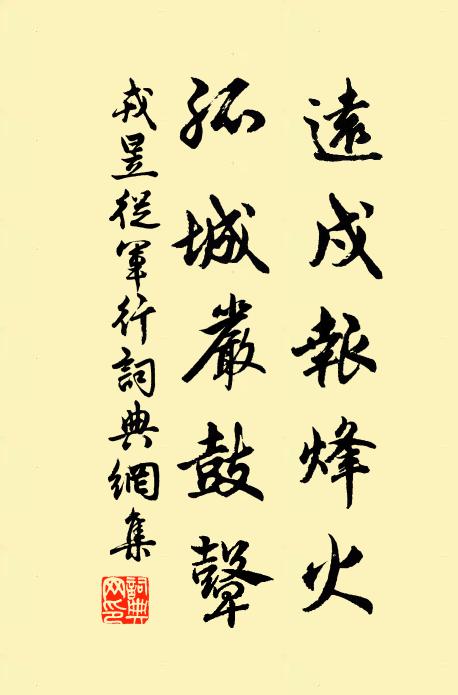 遠戍報烽火
孤城嚴鼓鼙
戎昱從軍行詞典網集
詞典网印